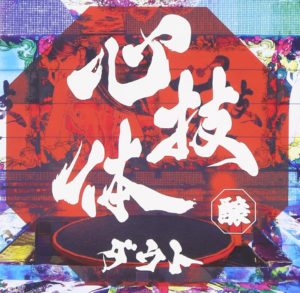 心技体
醸
ダウト